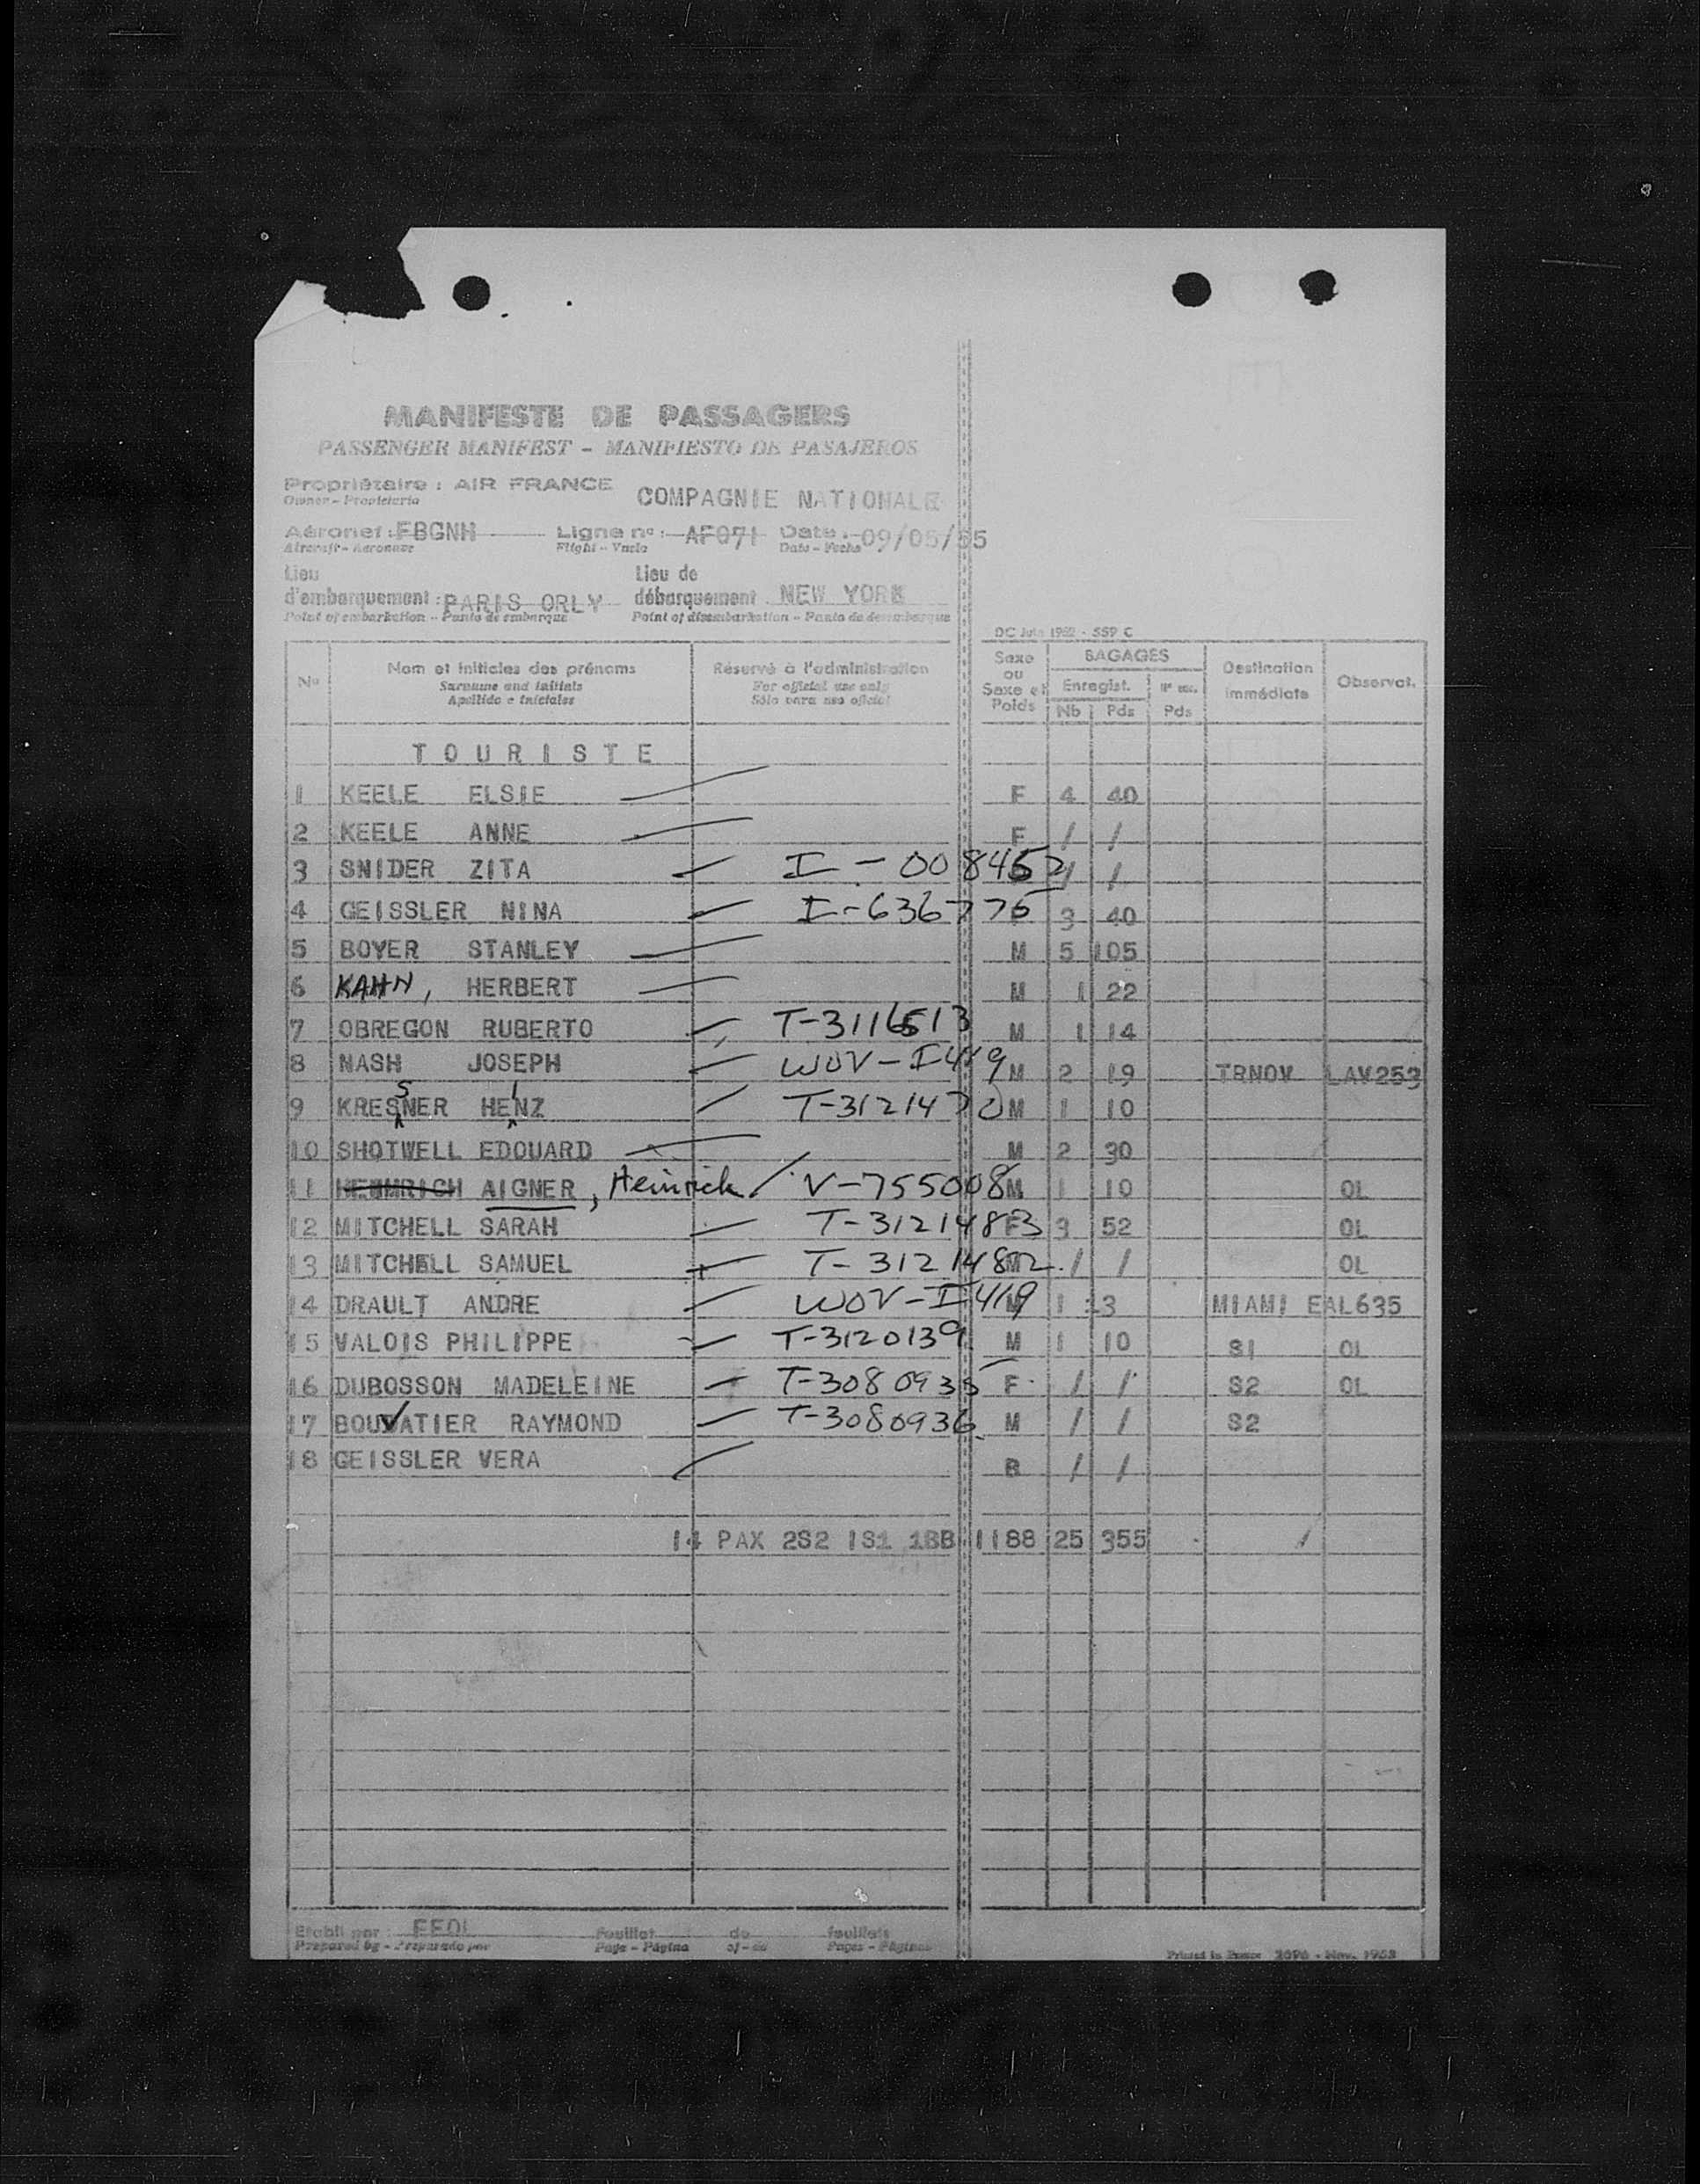 MANIFESTE DE PASSAGERS
PASSENGER MANIFEST - MANIFIESTO DE PASAJEROS
Propriétaire : AIR FRANCE COMPAGNIE NATIONALE
Owner - Propietario
Aéronef : FBGNH Ligne n° : AF071 Date : 09/05/55
Aircraft - Aeronave Flight - Vuelo Date - Fecha
Lieu d'embarquement : PARIS ORLY Lieu de débarquement NEW YORK
Point of embarkation - Punto de embarque Point of disembarkation - Punto de desembarque
DC Juin 1952 - 559 C
N° Nom et initiales des prénoms Réservé à l'administration Sexe ou Sexe et Poids BAGAGES Destination immédiate Observat.
Surname and initials For official use only Enregist.
Apellido e iniciales Sólo para uso oficial Nb Pds Pds
TOURISTE
1 KEELE ELSIE F 4 40
2 KEELE ANNE F / /
3 SNIDER ZITA I-008452 / /
4 GEISSLER NINA I-636775 3 40
5 BOYER STANLEY M 5 105
6 KAHN, HERBERT M 1 22
7 OBREGON RUBERTO T-3116513 M 1 14
8 NASH JOSEPH WOV-I419 M 2 19 TRNOV LAV253
9 KRESSNER HEINZ T-3121470 M 1 10
10 SHOTWELL EDOUARD M 2 30
11 AIGNER, Heinrich V-755008 M 1 10 OL
12 MITCHELL SARAH T-3121483 F 3 52 OL
13 MITCHELL SAMUEL T-3121482 M / / OL
14 DRAULT ANDRE WOV-I419 M 1 13 MIAMI EAL635
15 VALOIS PHILIPPE T-3120139 M 1 10 S1 OL
16 DUBOSSON MADELEINE T-3080935 F / / S2 OL
17 BOUVATIER RAYMOND T-3080936 M / / S2
18 GEISSLER VERA B / /
14 PAX 2S2 1S1 1BB 1188 25 355 /
Etabli par : FEOL Feuillet de feuillets
Prepared by - Preparado por Page - Página of - de Pages - Páginas
Printed in France 2096 - Nov. 1953